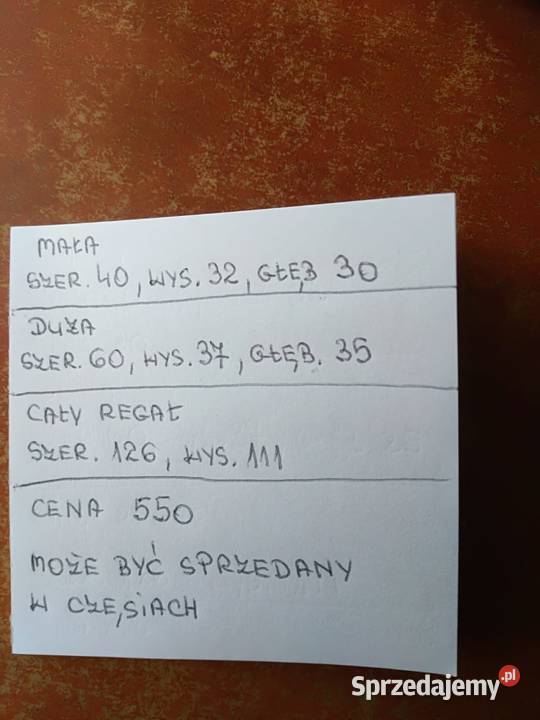 MAŁA
SZER. 40, WYS. 32, GŁĘB 30
DUŻA
SZER. 60, WYS. 37, GŁĘB. 35
CAŁY REGAŁ
SZER. 126, WYS. 111
CENA 550
MOŻE BYĆ SPRZEDANY
W CZĘSIACH
Sprzedajemy.pl